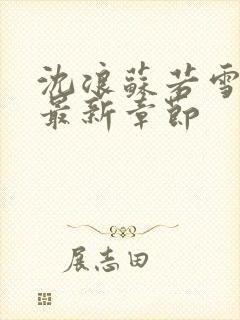 沈浪蘇若雪
最新章節
展志田